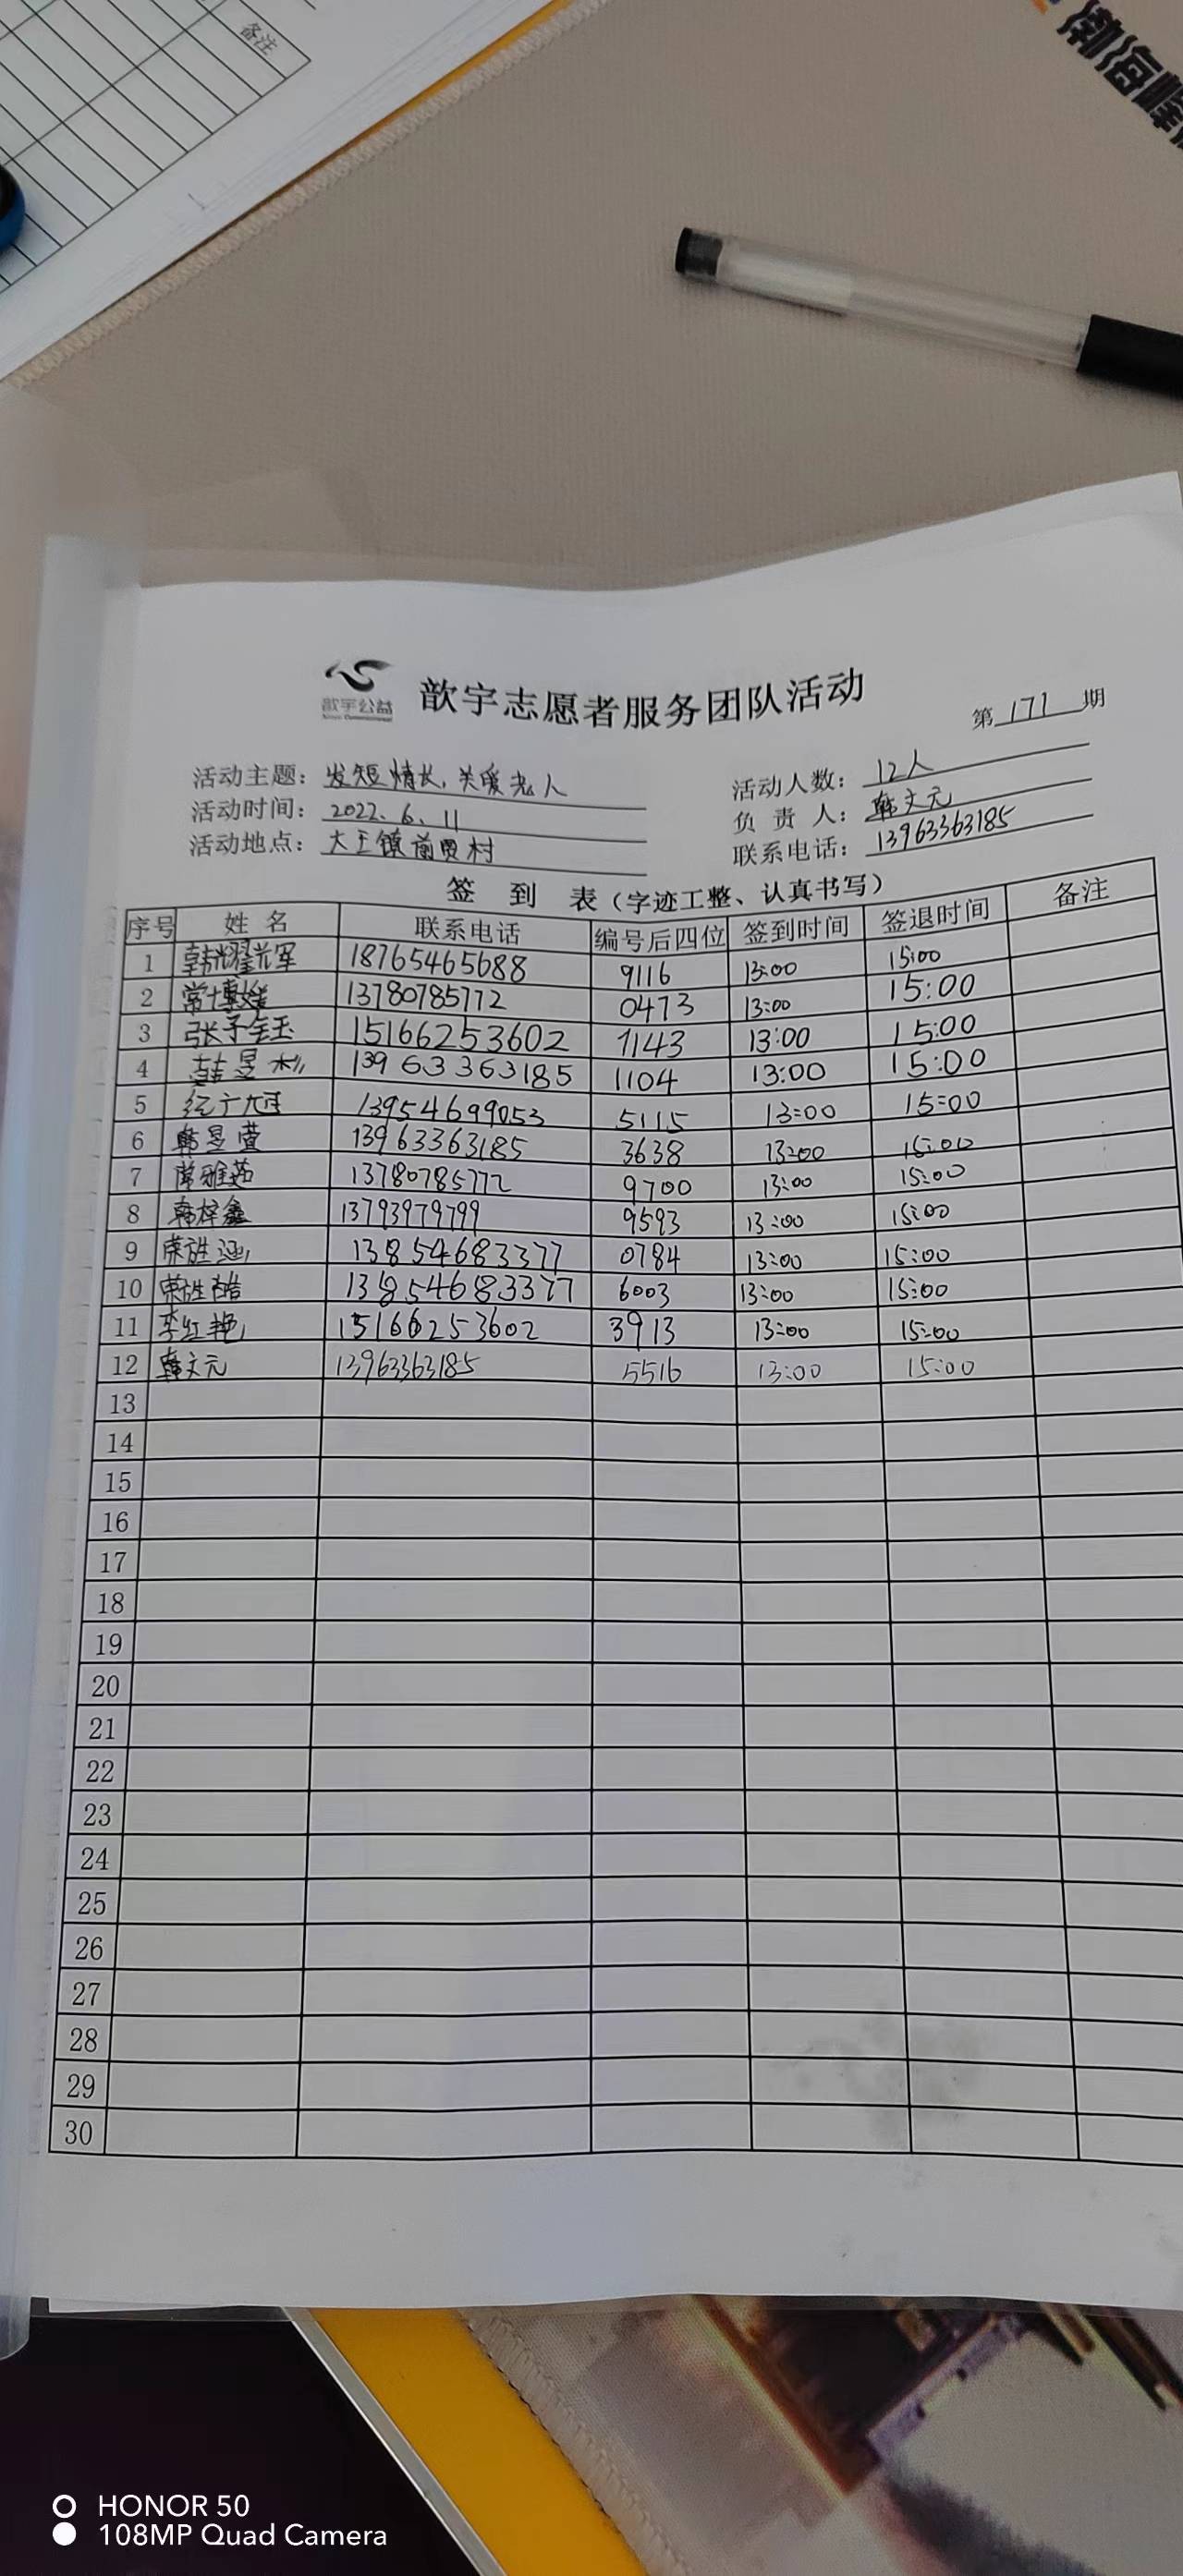 备注
渤海
歆宇公益
歆宇志愿者服务团队活动
第 171 期
活动主题: 发短情长, 关爱老人
活动人数: 12人
活动时间: 2022. 6. 11
负责人: 韩文元
活动地点: 大王镇前贾村
联系电话: 13963363185
签到表(字迹工整、认真书写)
序号 姓名 联系电话 编号后四位 签到时间 签退时间 备注
1 韩耀 18765465688 9116 13:00 15:00
2 常博媛 13780785772 0473 13:00 15:00
3 张子钰 15166253602 1143 13:00 15:00
4 韩昱彬 13963363185 1104 13:00 15:00
5 13954699053 5115 13:00 15:00
6 韩昱萱 13963363185 3638 13:00 15:00
7 常雅茹 13780785772 9700 13:00 15:00
8 韩梓鑫 13793979799 9593 13:00 15:00
9 荣胜涵 13854683377 0784 13:00 15:00
10 荣胜皓 13854683377 6003 13:00 15:00
11 李红艳 15166253602 3913 13:00 15:00
12 韩文元 13963363185 5516 13:00 15:00
13
14
15
16
17
18
19
20
21
22
23
24
25
26
27
28
29
30
HONOR 50
108MP Quad Camera